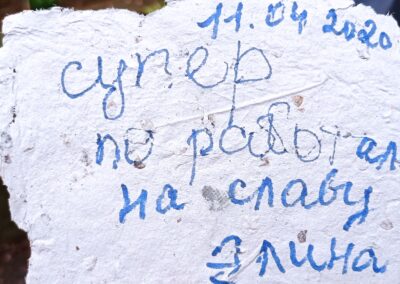 11.04 2020
супер
по работал
на славу
Элина